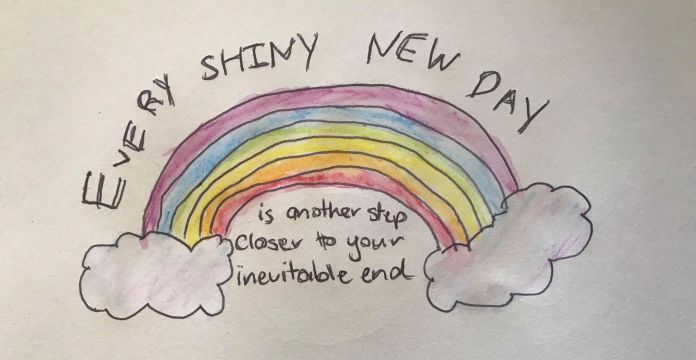 EVERY SHINY NEW DAY
is another step
closer to your
inevitable end